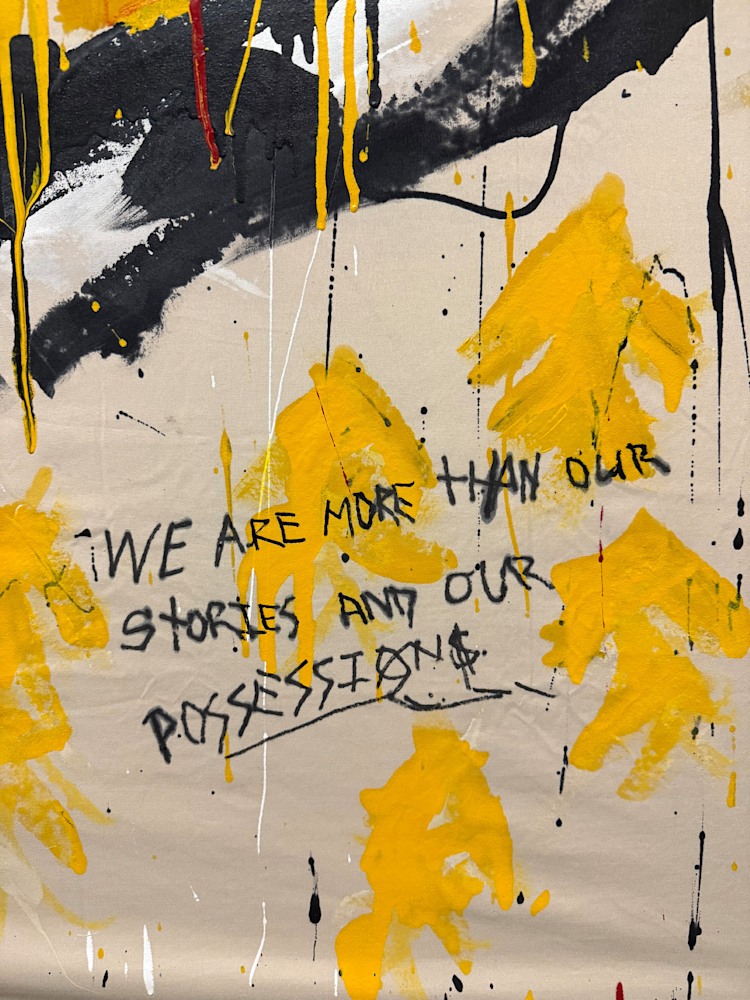 WE ARE MORE THAN OUR
STORIES AND OUR
POSSESSION$